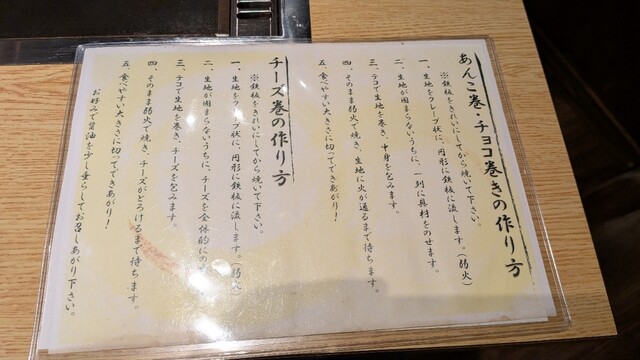 あんこ巻・チョコ巻きの作り方
※鉄板をきれいにしてから焼いて下さい。
一、生地をクレープ状に、円形に鉄板に流します。(弱火)
二、生地が固まらないうちに、一列に具材をのせます。
三、テコで生地を巻き、中身を包みます。
四、そのまま弱火で焼き、生地に火が通るまで待ちます。
五、食べやすい大きさに切ってできあがり!
チーズ巻の作り方
※鉄板をきれいにしてから焼いて下さい。
一、生地をクレープ状に、円形に鉄板に流します。(弱火)
二、生地が固まらないうちに、チーズを全体的にのせ
三、テコで生地を巻き、チーズを包みます。
四、そのまま弱火で焼き、チーズがとろけるまで待ちます。
五、食べやすい大きさに切ってできあがり!
お好みで醤油を少し垂らしてお召しあがり下さい。